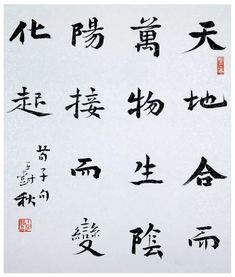 天地合而
萬物生陰
陽接而變
化起
荀子句
秋